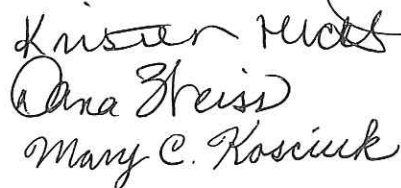 Kristen
Dana Weiss
Mary C. Kosciuk